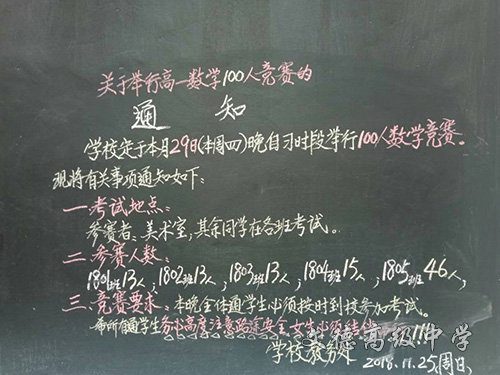 关于举行高一数学100人竞赛的
通 知
学校定于本月29日(本周四)晚自习时段举行100人数学竞赛。
现将有关事项通知如下:
一 考试地点:
参赛者、美术室,其余同学在各班考试。
二 参赛人数:
1801班13人,1802班13人,1803班13人,1804班15人,1805班46人,
三 竞赛要求:本晚全体通学生必须按时到校参加考试。
希所有通学生务必高度注意路途安全,女生必须结伴
学校教务处
2018.11.25(周日)
高级中学